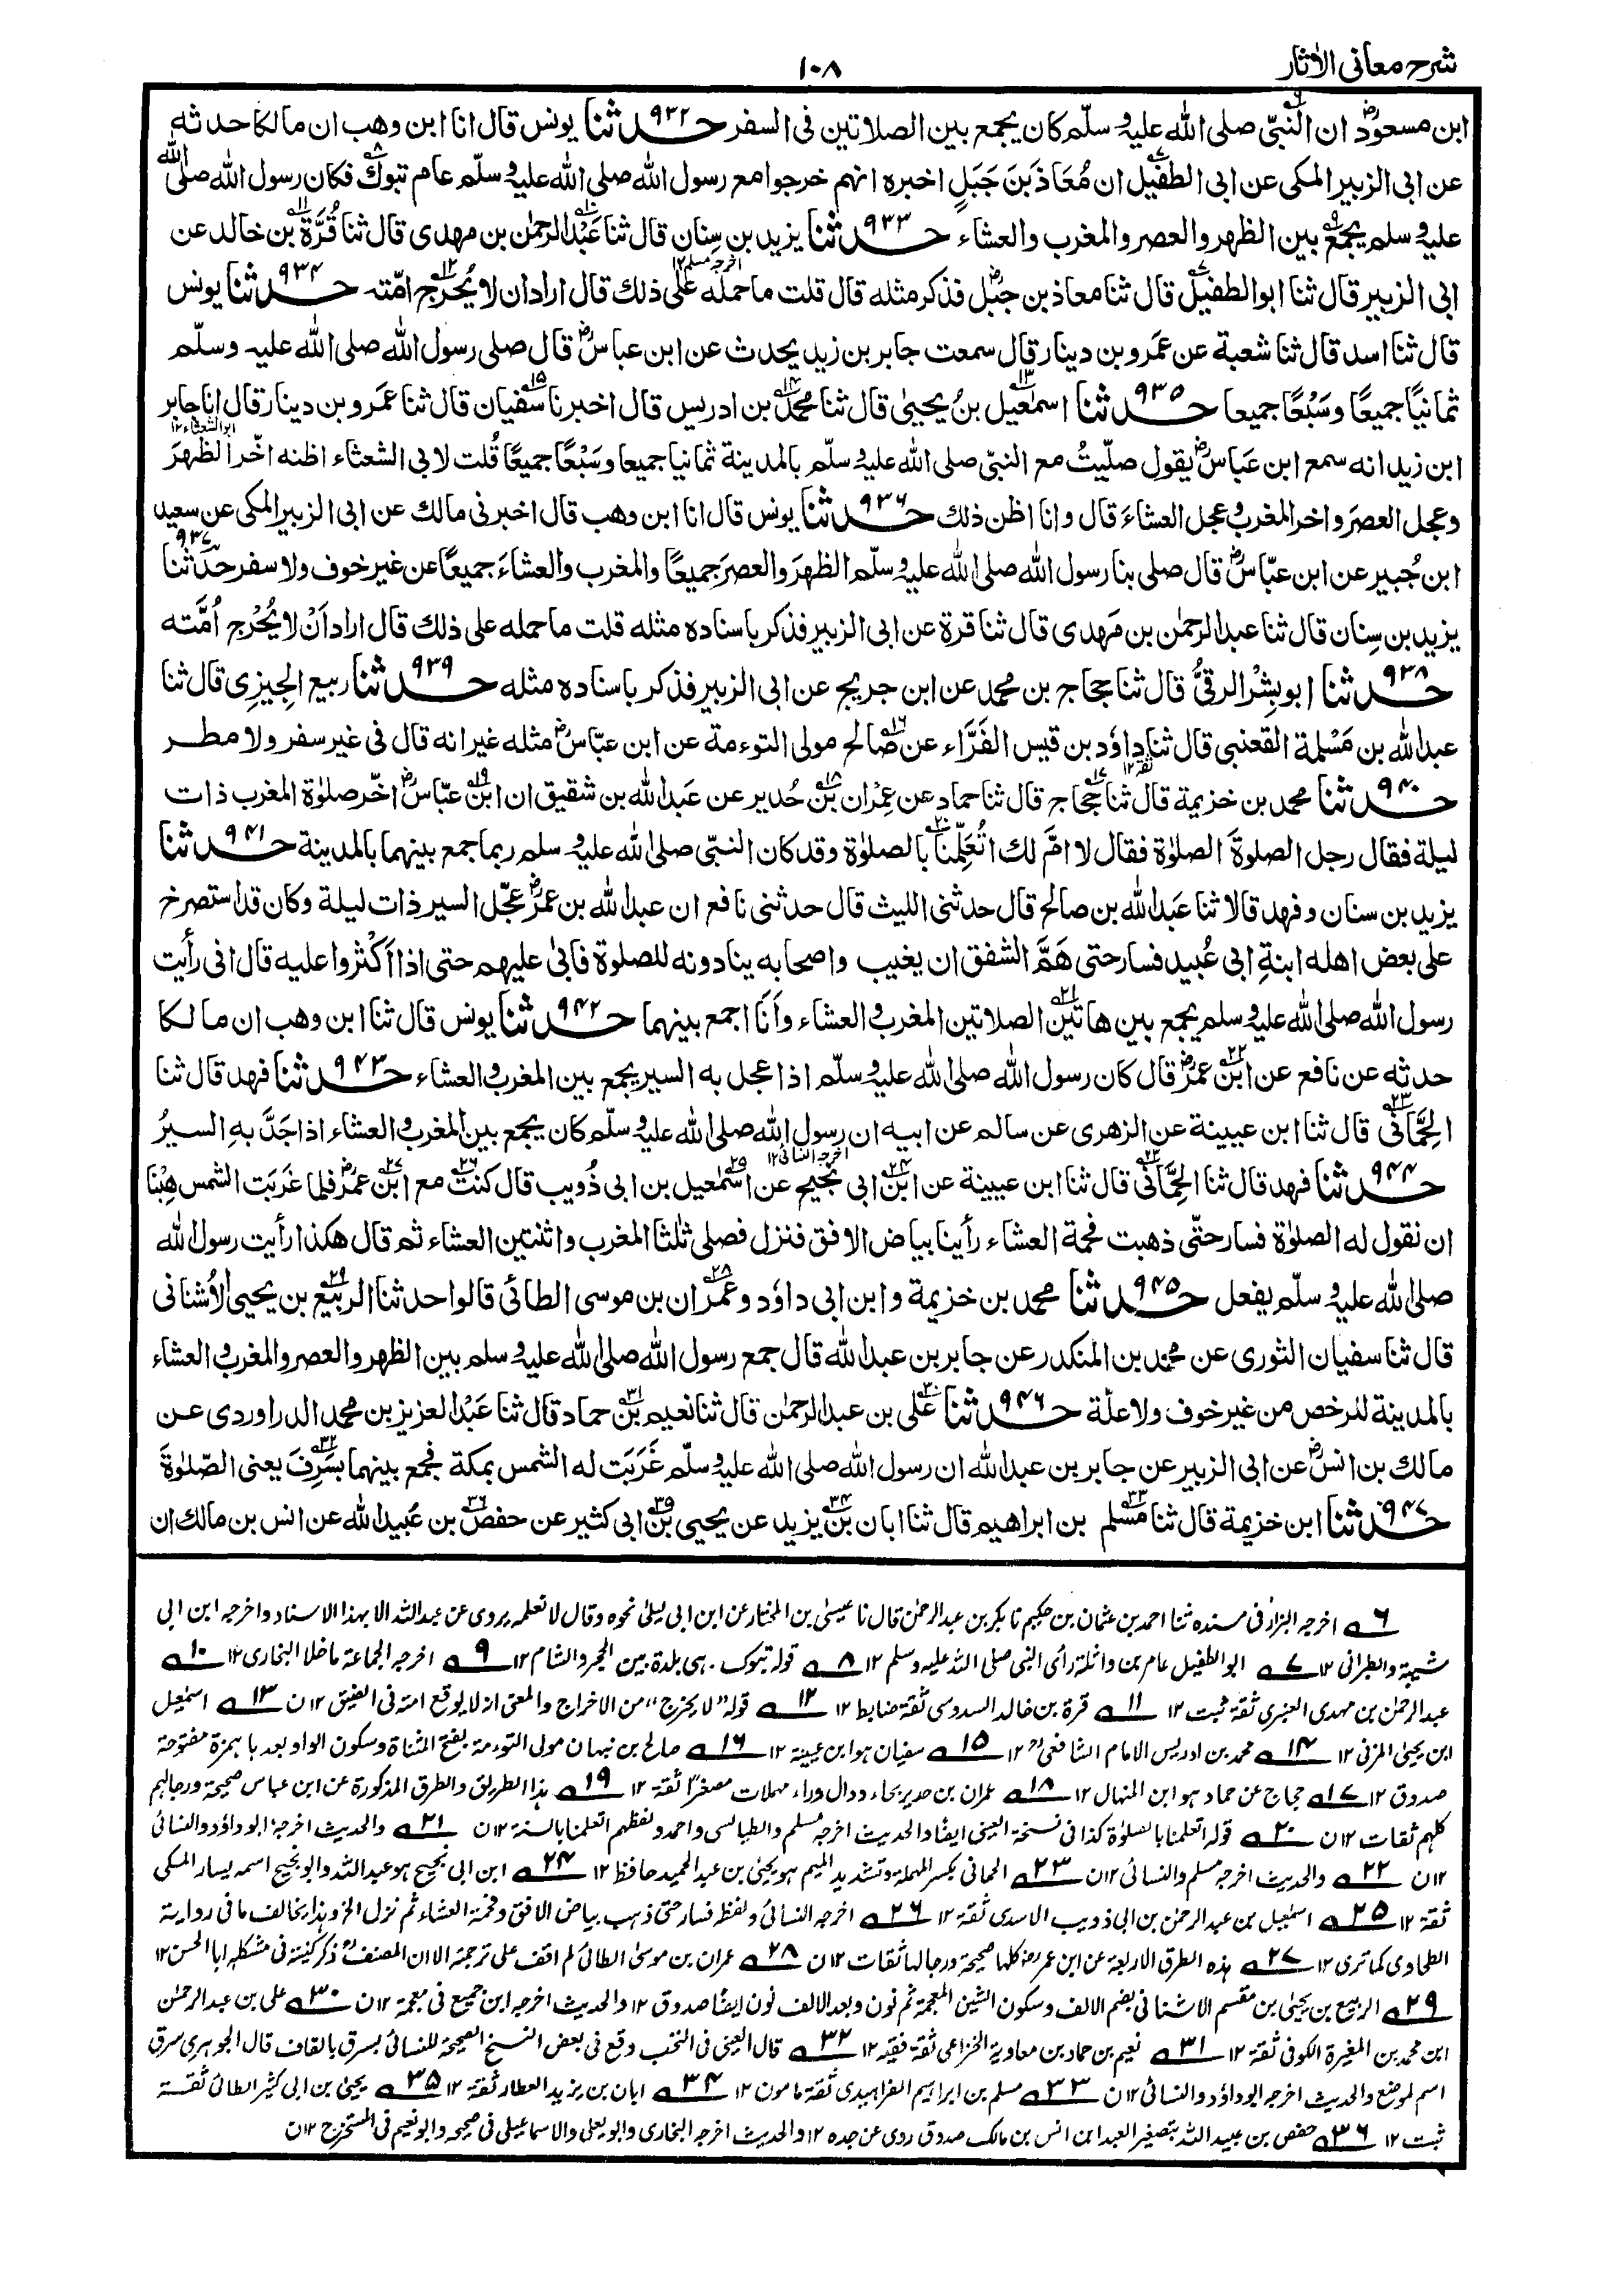 شرح معانی الاٰثار
١٠٨
ابن مسعودؓ ان النبیّ صلی الله علیہ وسلّم کان یجمع بین الصلاتین فی السفر حدثنا ٩٣٢ یونس قال انا ابن وهب ان مالکا حدثه
عن ابی الزبیر المکی عن ابی الطفیل ان مُعَاذَ بَنَ جَبَلٍ اخبره انهم خرجوا مع رسول الله صلی الله علیہ وسلّم عام تبوک فکان رسول الله صلی الله
علیہ وسلم یجمع بین الظهر والعصر والمغرب والعشاء حدثنا ٩٣٣ یزید بن سِنان قال ثنا عَبْد الرحمٰن بن مهدی قال ثنا قُرَّة بن خالد عن
ابی الزبیر قال ثنا ابو الطفیل قال ثنا معاذ بن جبل فذکر مثله قال قلت ما حمله علیٰ ذلك قال اراد ان لا یُحْرِج امّته حدثنا ٩٣٤ یونس
قال ثنا اسد قال ثنا شعبة عن عَمرو بن دینار قال سمعت جابر بن زید یحدث عن ابن عباسؓ قال صلی رسول الله صلی الله علیہ وسلّم
ثمانیًا جمیعًا وسَبْعًا جمیعا حدثنا ٩٣٥ اسمٰعیل بنُ یحییٰ قال ثنا محمّد بن ادریس قال اخبرنا سُفیان قال ثنا عَمَرو بن دینار قال انا جابر
ابن زید انه سمع ابن عَباسؓ یقول صلّیتُ مع النبیّ صلی الله علیہ وسلّم بالمدینة ثمانیا جمیعا وسَبْعًا جمیعًا قُلت لابی الشعثاء اظنه اخّر الظهرَ
وعجل العصرَ واخر المغرب وعجل العشاءَ قال وانا اظن ذلك حدثنا ٩٣٦ یونس قال انا ابن وهب قال اخبرنی مالك عن ابی الزبیر المکی عن سعید
ابن جُبیر عن ابن عبّاسؓ قال صلی بنا رسول الله صلی الله علیہ وسلّم الظهرَ والعصرَ جمیعًا والمغرب والعشاءَ جمیعًا عن غیر خوف ولا سفر حدثنا ٩٣٧
یزید بن سِنان قال ثنا عبد الرحمٰن بن مَهدی قال ثنا قرة عن ابی الزبیر فذکر باسناده مثله قلت ما حمله علی ذلك قال اراد اَنْ لا یُحْرِج اُمَّته
حدثنا ٩٣٨ ابو بِشْر الرقیُّ قال ثنا حجاج بن محمد عن ابن جریج عن ابی الزبیر فذکر باسناده مثله حدثنا ٩٣٩ ربیع الجِیزِی قال ثنا
عبد الله بن مَسْلمة القعنبی قال ثنا داوٗد بن قیس الفَرَّاء عن صالح مولی التوءمة عن ابن عبّاسؓ مثله غیر انه قال فی غیر سفر ولا مطر
حدثنا ٩٤٠ محمد بن خزیمة قال ثنا حجاج قال ثنا حماد عن عِمْران بن حُدیر عن عبد الله بن شقیق ان ابن عبّاسؓ اخّر صلوٰة المغرب ذات
لیلة فقال رجل الصلوةَ الصلوٰة فقال لا امَّ لك اتُعَلِّمنا بالصلوٰة وقد کان النبیّ صلی الله علیہ وسلم ربما جمع بینهما بالمدینة حدثنا ٩٤١
یزید بن سنان وفهد قالا ثنا عَبد الله بن صالح قال حدثنی اللیث قال حدثنی نافع ان عبد الله بن عمرؓ عجّل السیر ذات لیلة وکان قد استصرخ
علی بعض اهله ابنةِ ابی عُبید فسار حتی هَمَّ الشفق ان یغیب واصحابه ینادونه للصلوة فابیٰ علیهم حتی اذا اَکْثروا علیه قال انی رأیت
رسول الله صلی الله علیہ وسلم یجمع بین هاتین الصلاتین المغرب والعشاء وأنَا اجمع بینهما حدثنا ٩٤٢ یونس قال ثنا ابن وهب ان مالکا
حدثه عن نافع عن ابن عمرؓ قال کان رسول الله صلی الله علیہ وسلّم اذا عجل به السیر یجمع بین المغرب والعشاء حدثنا ٩٤٣ فهد قال ثنا
الحِمَّانی قال ثنا ابن عیینة عن الزهری عن سالم عن ابیه ان رسول الله صلی الله علیہ وسلّم کان یجمع بین المغرب والعشاء اذا جَدَّ بهِ السیرُ
حدثنا ٩٤٤ فهد قال ثنا الحِمَّانی قال ثنا ابن عیینة عن ابن ابی نجیح عن اسمٰعیل بن ابی ذُویب قال کنت مع ابن عمرؓ فلما غَرَبَت الشمس هِبْنا
ان نقول له الصلوٰة فسار حتّی ذهبت فحمة العشاء رأینا بیاض الافق فنزل فصلی ثلٰثا المغرب واثنتین العشاء ثم قال هکذا رأیت رسول الله
صلی الله علیہ وسلّم یفعل حدثنا ٩٤٥ محمد بن خزیمة وابن ابی داوٗد وعمران بن موسی الطائی قالوا حدثنا الربیع بن یحیی الاُشنانی
قال ثنا سفیان الثوری عن محمد بن المنکدر عن جابر بن عبد الله قال جمع رسول الله صلی الله علیہ وسلم بین الظهر والعصر والمغرب والعشاء
بالمدینة للرخص من غیر خوف ولا علّة حدثنا ٩٤٦ علی بن عبد الرحمٰن قال ثنا نعیم بن حماد قال ثنا عَبْد العزیز بن محمد الدراوردی عن
مالك بن انسؓ عن ابی الزبیر عن جابر بن عبد الله ان رسول الله صلی الله علیہ وسلّم غَرَبَت له الشمس بمکة فجمع بینهما بسَرِفَ یعنی الصّلوٰةَ
حدثنا ٩٤٧ ابن خزیمة قال ثنا مسلم بن ابراهیم قال ثنا ابان بن یزید عن یحیی بن ابی کثیر عن حفص بن عُبید الله عن انس بن مالك ان
٦ اخرجه البزار فی مسنده ثنا احمد بن عثمان بن حکیم نا بکر بن عبد الرحمٰن قال نا عیسیٰ بن المختار عن ابن ابی لیلیٰ نحوه وقال لا نعلمه یروی عن عبد الله الا بهذا الاسناد واخرجه ابن ابی
شیبة والطبرانی ١٢ ٧ ابو الطفیل عامر بن واثلة رأی النبی صلی الله علیه وسلم ١٢ ٨ قوله تبوک. هی بلدة بین الحجر والشام ١٢ ٩ اخرجه الجماعة ما خلا البخاری ١٢ ١٠
عبد الرحمٰن بن مهدی العنبری ثقة ثبت ١٢ ١١ قرة بن خالد السدوسی ثقة ضابط ١٢ ١٢ قوله "لا یحرج" من الاحراج والمعنی انه لا یوقع امته فی الضیق ١٢ ن ١٣ اسمٰعیل
ابن یحییٰ المزنی ١٢ ١٤ محمد بن ادریس الامام الشافعیؒ ١٢ ١٥ سفیان هو ابن عیینة ١٢ ١٦ صالح بن نبهان مولی التوءمة بفتح المثناة وسکون الواو بعدها همزة مفتوحة
صدوق ١٢ ١٧ حجاج عن حماد هو ابن المنهال ١٢ ١٨ عمران بن حدیر بحاء ودال وراء مهملات مصغرًا ثقة ١٢ ١٩ هذا الطریق والطرق المذکورة عن ابن عباس صحیحة ورجالهم
کلهم ثقات ١٢ ن ٢٠ قوله اتعلمنا بالصلوٰة کذا فی نسخة العینی ایضًا والحدیث اخرجه مسلم والطیالسی واحمد ولفظهم اتعلمنا بالسنة ١٢ ن ٢١ والحدیث اخرجه ابو داؤد والنسائی
١٢ ن ٢٢ والحدیث اخرجه مسلم والنسائی ١٢ ن ٢٣ الحمانی بکسر المهملة وتشدید المیم هو یحییٰ بن عبد الحمید حافظ ١٢ ٢٤ ابن ابی نجیح هو عبد الله وابو نجیح اسمه یسار المکی
ثقة ١٢ ٢٥ اسمٰعیل بن عبد الرحمٰن بن ابی ذویب الاسدی ثقة ١٢ ٢٦ اخرجه النسائی ولفظه فسار حتی ذهب بیاض الافق وفحمة العشاء ثم نزل الخ وهذا یخالف ما فی روایة
الطحاوی کما تری ١٢ ٢٧ هذه الطرق الاربعة عن ابن عمرؓ کلها صحیحة ورجالها ثقات ١٢ ن ٢٨ عمران بن موسیٰ الطائی لم اقف علی ترجمة الا ان المصنفؒ ذکر کنیته فی مشکله ابا الحسن ١٢
٢٩ الربیع بن یحییٰ بن مقسم الاشنانی بضم الالف وسکون الشین المعجمة ثم نون وبعد الالف نون ایضًا صدوق ١٢ والحدیث اخرجه ابن جمیع فی معجمه ١٢ ن ٣٠ علی بن عبد الرحمٰن
ابن محمد بن المغیرة الکوفی ثقة ١٢ ٣١ نعیم بن حماد بن معاویة الخزاعی ثقة فقیه ١٢ ٣٢ قال العینی فی النخب وقع فی بعض النسخ الصحیحة للنسائی بسرق بالقاف قال الجوهری سرق
اسم لموضع والحدیث اخرجه ابو داؤد والنسائی ١٢ ن ٣٣ مسلم بن ابراهیم الفراهیدی ثقة مامون ١٢ ٣٤ ابان بن یزید العطار ثقة ١٢ ٣٥ یحییٰ بن ابی کثیر الطائی ثقة
ثبت ١٢ ٣٦ حفص بن عبید الله بتصغیر العبد ابن انس بن مالک صدوق روی عن جده ١٢ والحدیث اخرجه البخاری وابو یعلی والاسماعیلی فی صحیحه وابو نعیم فی المستخرج ١٢ ن